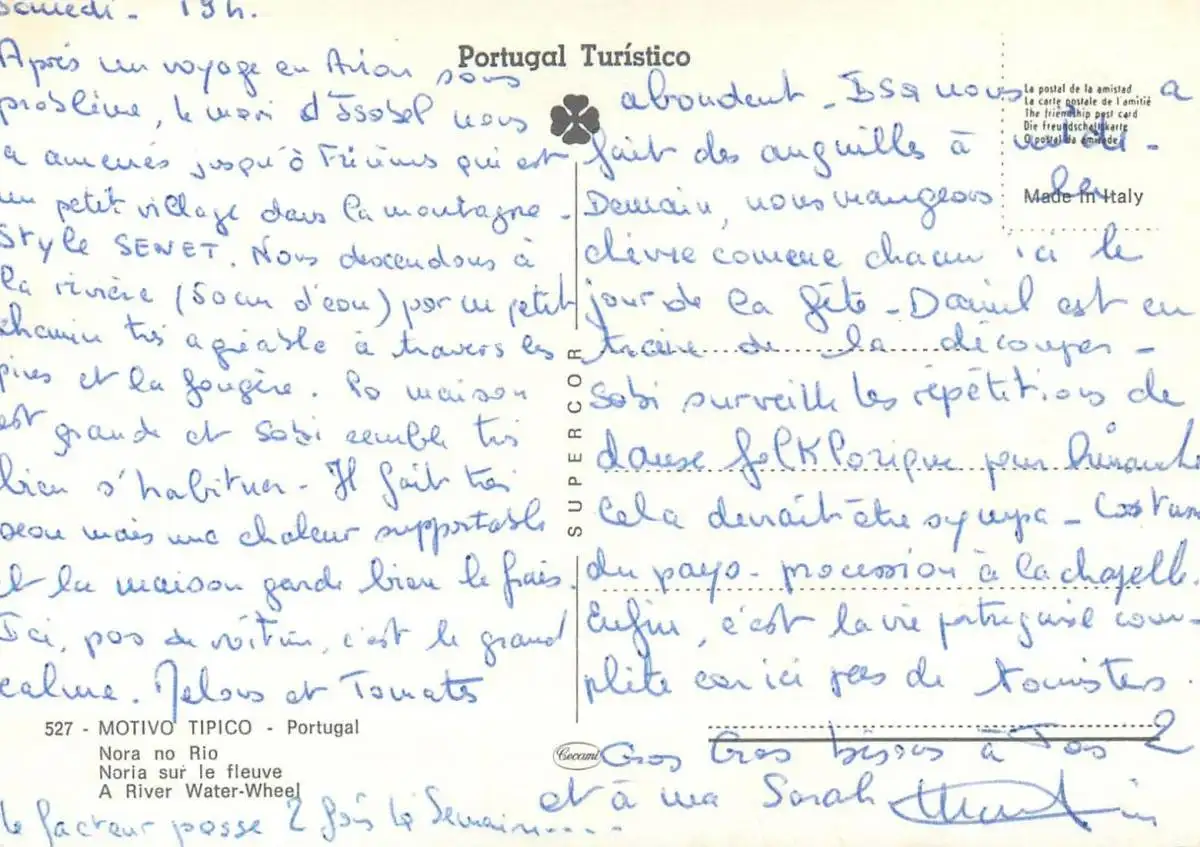 Samedi - 19h.
Après un voyage en Avion sans
problème, le mari d'Isabel nous
a amenés jusqu'à qui est
un petit village dans la montagne -
Style SENET. Nous descendons à
la rivière (50cm d'eau) par un petit
chemin très agréable à travers les
pins et la fougère. La maison
est grande et Sabi semble très
bien s'habituer - Il fait très
beau mais une chaleur supportable
et la maison garde bien le frais.
Ici, pas de voiture, c'est le grand
calme. Melons et Tomates
Portugal Turístico
abondent - Isa nous a
fait des anguilles à midi -
Demain, nous mangeons la
chèvre comme chacun ici le
jour de la fête - Daniel est en
train de la découper -
Sabi surveille les répétitions de
danse folklorique pour Dimanche
Cela devrait être sympa - Costume
du pays - procession à la chapelle.
Enfin, c'est la vie portugaise com-
plète car ici pas de touristes.
Gros Gros bisous à Tos 2
et à ma Sarah
le facteur passe 2 fois la Semaine....
La postal de la amistad
La carte postale de l'amitié
The friendship post card
Die freundschaftskarte
O postal da amizade
Made in Italy
SUPERCOR
527 - MOTIVO TIPICO - Portugal
Nora no Rio
Noria sur le fleuve
A River Water-Wheel
Cecami